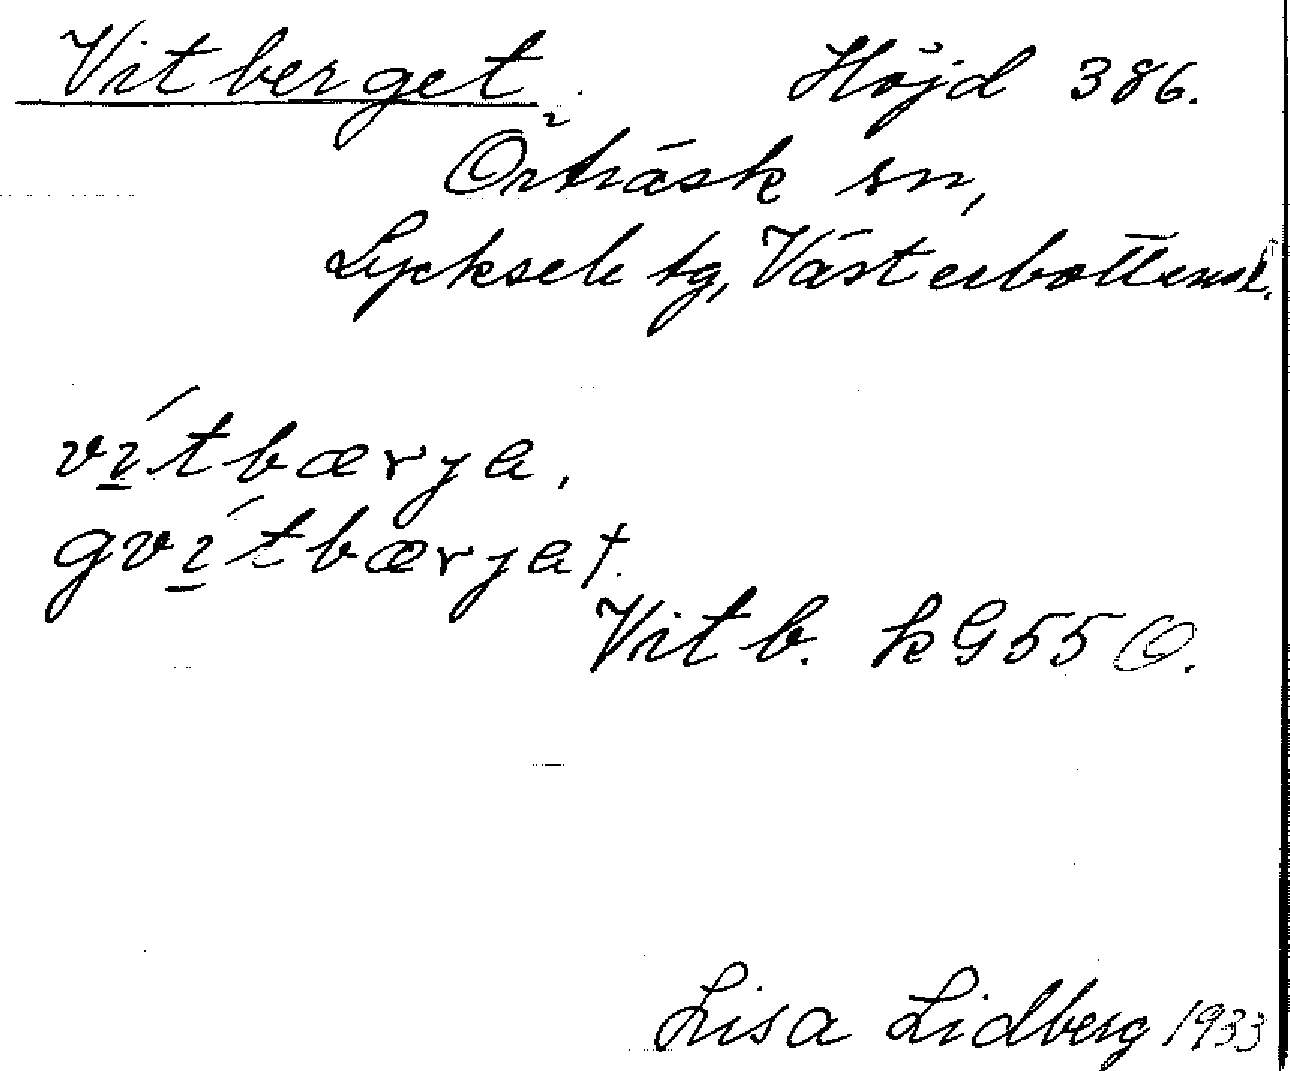 Vitberget. Höjd 386.
Örträsk sn,
Lycksele tg, Västerbottens l.
ví̱tbærja,
gví̱tbærja†.
Vitb. kG55O.
Lisa Lidberg 1933